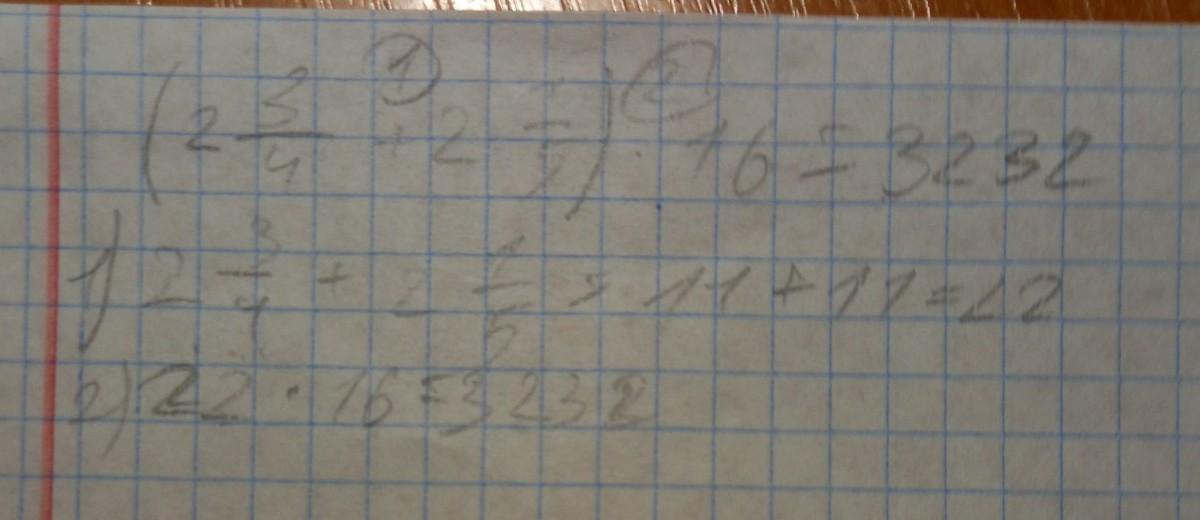 (2 3/4 + 2 1/5) · 16 = 3232
① ②
1) 2 3/4 + 2 1/5 = 11 + 11 = 22
2) 22 · 16 = 3232